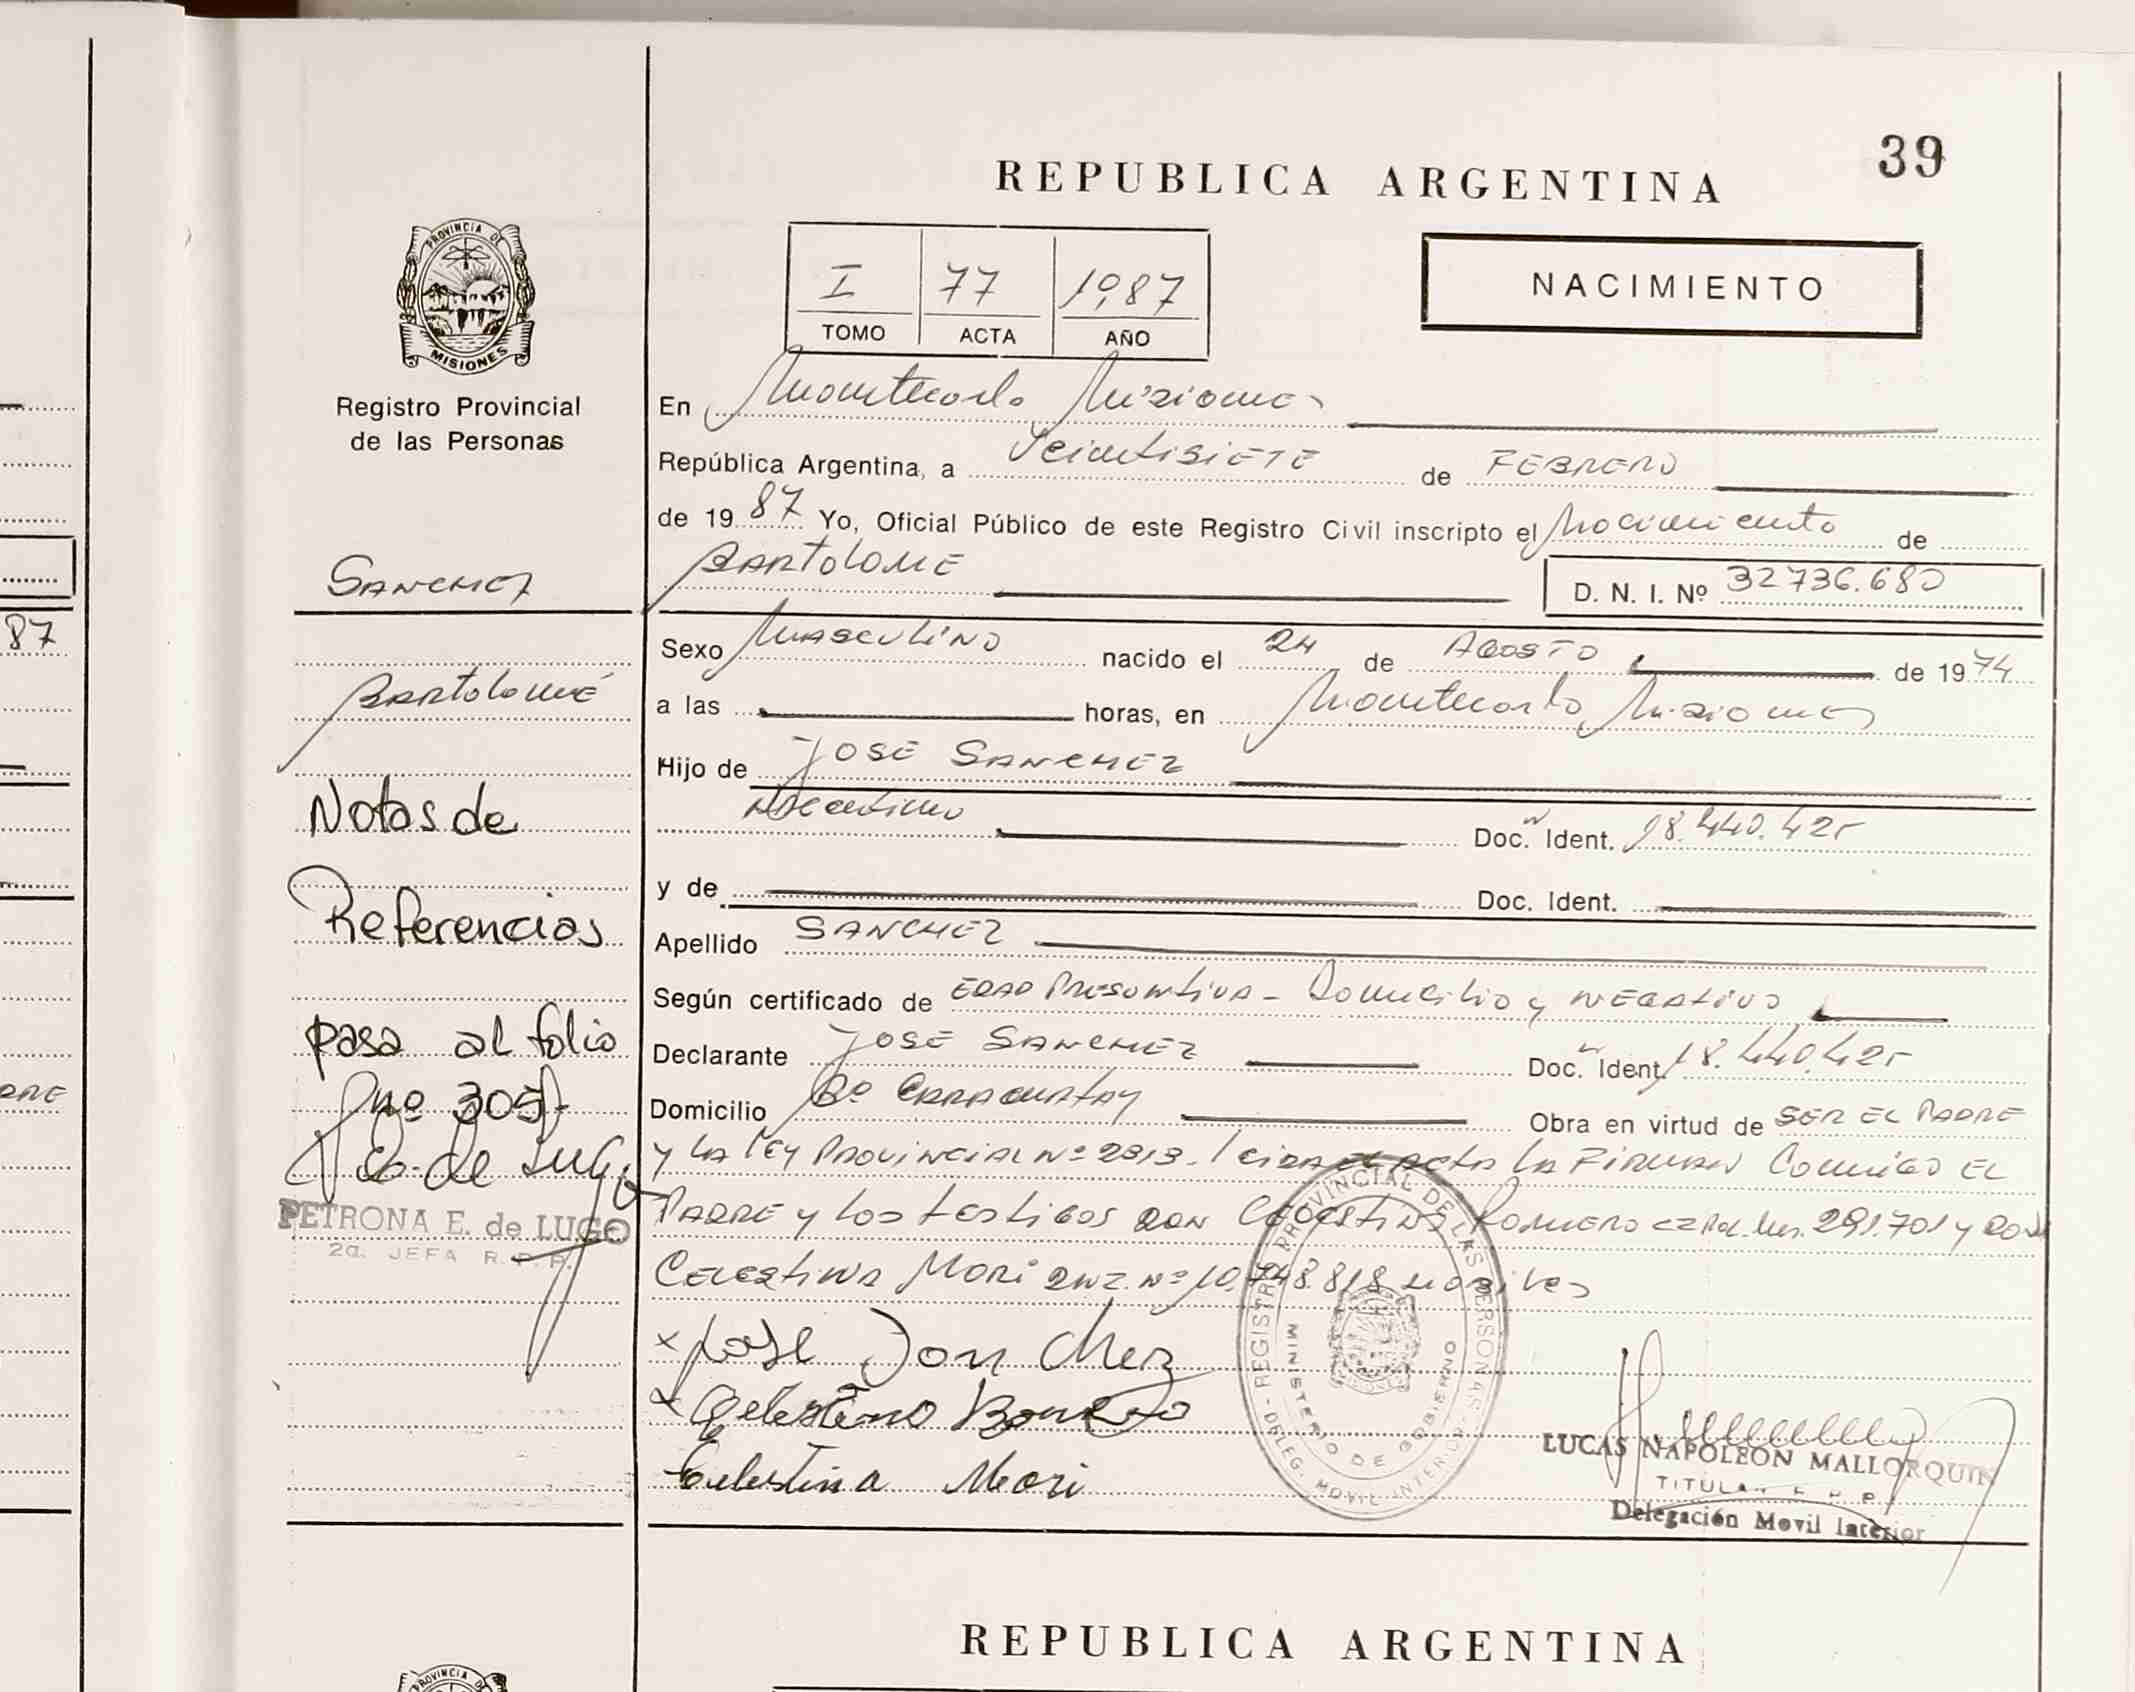 39
REPUBLICA ARGENTINA
NACIMIENTO
I 77 1987
TOMO ACTA AÑO
PROVINCIA DE
MISIONES
Registro Provincial
de las Personas
SANCHEZ
Bartolomé
Notas de
Referencias
pasa al folio
nº 305
P. E. de Lugo
PETRONA E. de LUGO
2a. JEFA R. P. P.
En Montecarlo Misiones
República Argentina, a Veintisiete de FEBRERO
de 1987 Yo, Oficial Público de este Registro Civil inscripto el Nacimiento de
BARTOLOME D. N. I. Nº 32736.680
Sexo Masculino nacido el 24 de AGOSTO de 1974
a las horas, en Montecarlo Misiones
Hijo de JOSE SANCHEZ
Argentino Doc. Ident. 18.440.425
y de Doc. Ident.
Apellido SANCHEZ
Según certificado de EDAD Presuntiva - Domicilio y NEGATIVO
Declarante JOSE SANCHEZ Doc. Ident. 18.440.425
Domicilio Bº Obra en virtud de SER EL PADRE
y LA LEY PROVINCIAL Nº Leida el acta LA FIRMAN Conmigo EL
PADRE y los testigos DON Celestino Romero 291.701 y DOÑA
Celestina Mori Nº 10.748.818
x Jose San Chez
x Celestino Romero
Celestina Mori
REGISTRO PROVINCIAL DE LAS PERSONAS
DELEG. MOVIL INTERIOR
MINISTERIO DE GOBIERNO
LUCAS NAPOLEON MALLORQUIN
TITULAR
Delegación Movil Interior
REPUBLICA ARGENTINA
PROVINCIA
87